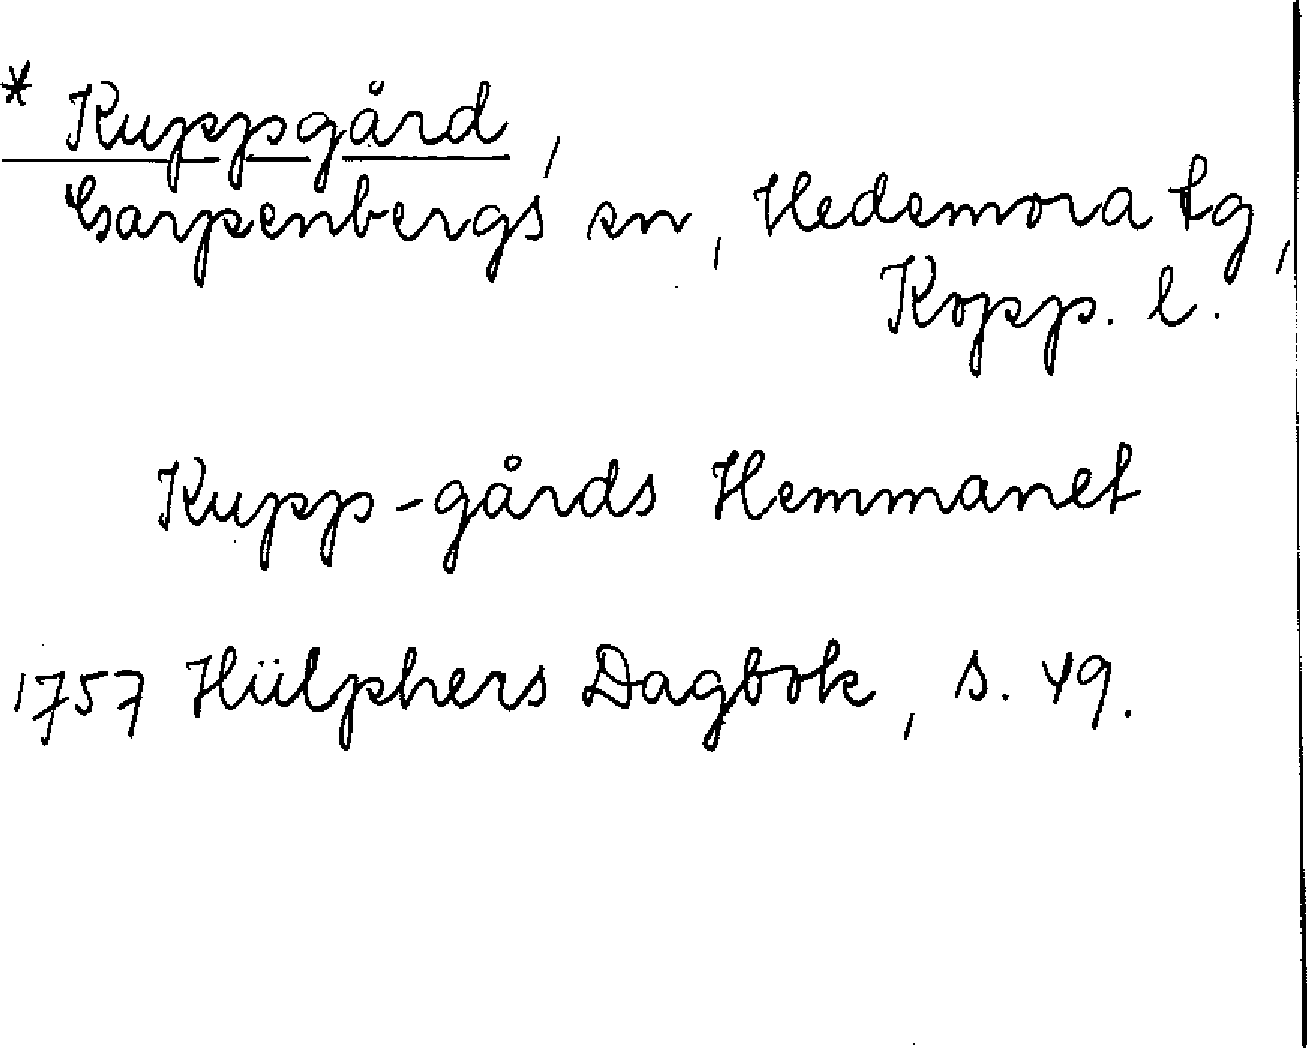 * Kuppgård,
Garpenbergs sn, Hedemora tg,
Kopp. l.
Kupp-gårds Hemmanet
1757 Hülphers Dagbok, s. 49.